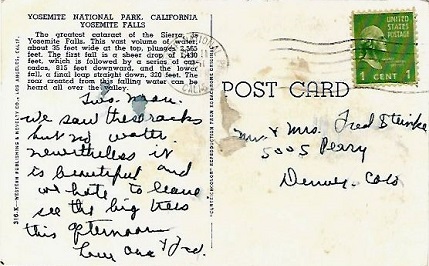 YOSEMITE NATIONAL PARK, CALIFORNIA
YOSEMITE FALLS
The greatest cataract of the Sierra,
Yosemite Falls. This vast volume of water,
about 35 feet wide at the top, plunges 2,565
feet. The first fall is a sheer drop of 1,430
feet, which is followed by a series of cas-
cades, 815 feet downward, and the lower
fall, a final leap straight down, 320 feet. The
roar created from this falling water can be
heard all over the valley.
316.X—WESTERN PUBLISHING & NOVELTY CO., LOS ANGELES, CALIF.
we saw the cracks
but no water.
nevertheless it
is beautiful and
we hate to leave
see the big trees
this afternoon
Love
POST CARD
UNITED
STATES
POSTAGE
1 CENT 1
CALIF
Mr. & Mrs. Fred
5005 Perry
Denver, Colo